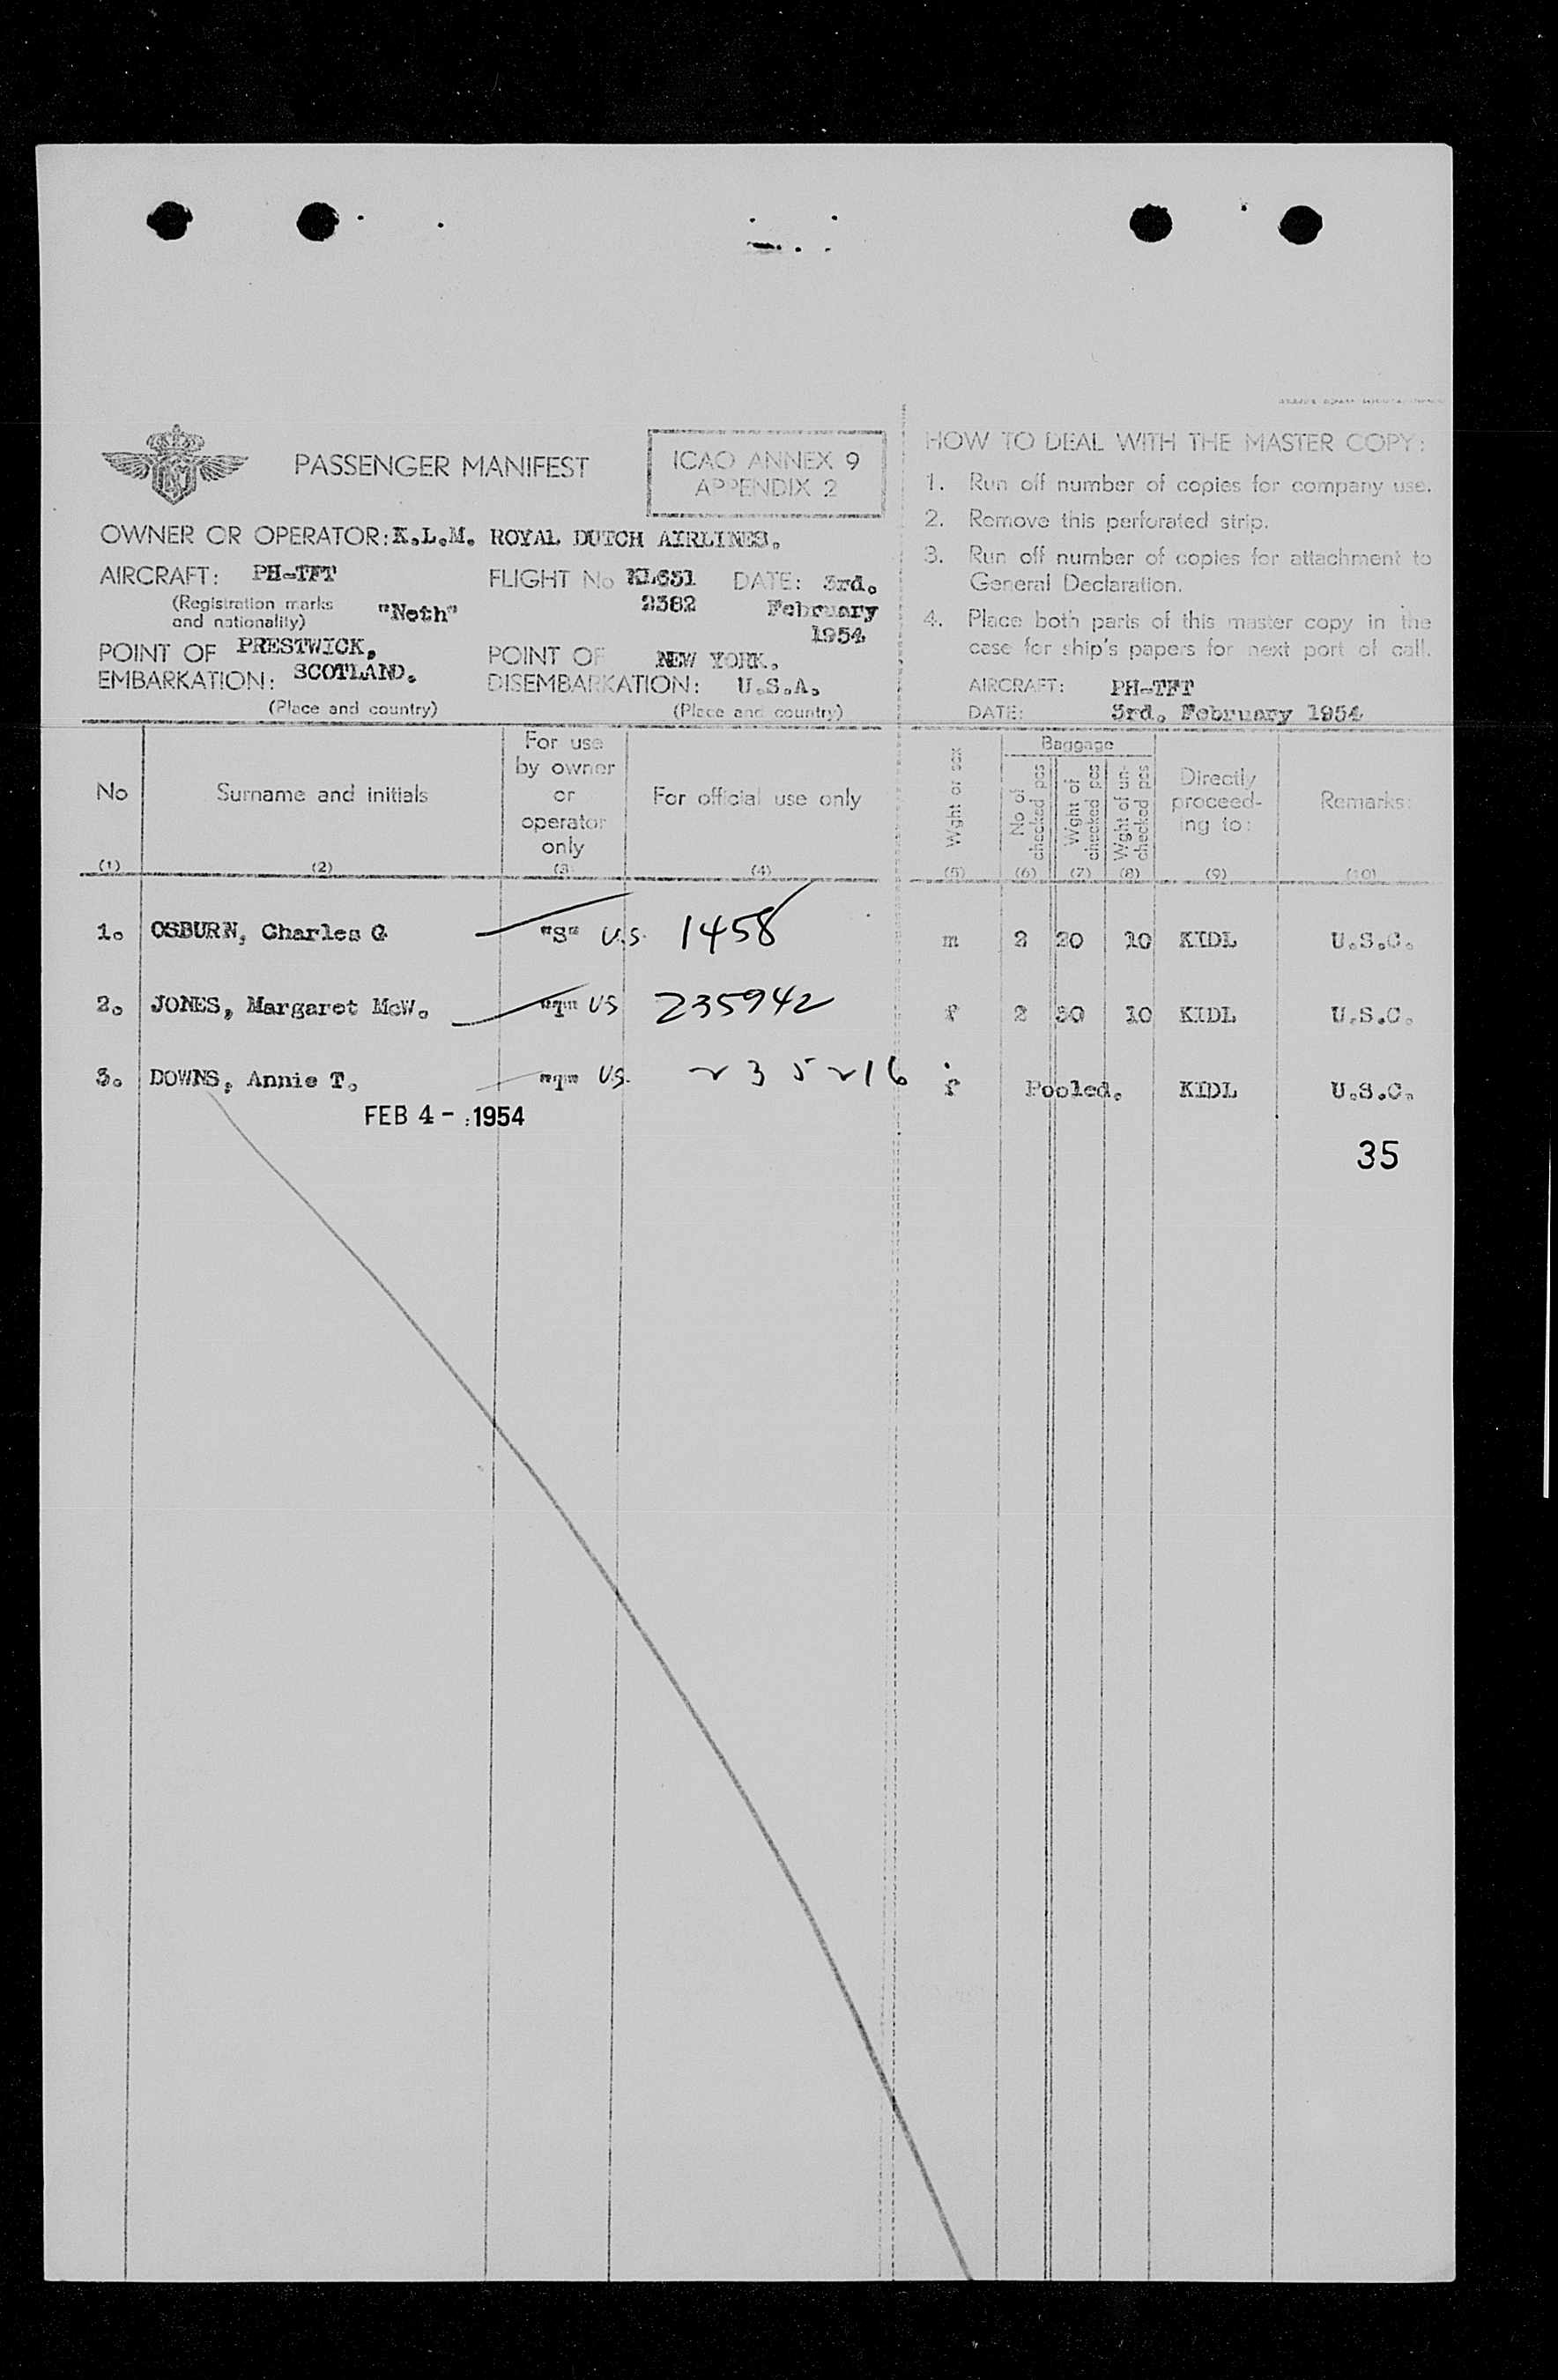 PASSENGER MANIFEST
ICAO ANNEX 9
APPENDIX 2
OWNER OR OPERATOR: K.L.M. ROYAL DUTCH AIRLINES.
AIRCRAFT: PH-TFT
(Registration marks
and nationality)
"Neth"
FLIGHT No KL651
2382
DATE: 3rd.
February
1954
POINT OF PRESTWICK,
EMBARKATION: SCOTLAND.
(Place and country)
POINT OF NEW YORK,
DISEMBARKATION: U.S.A.
(Place and country)
HOW TO DEAL WITH THE MASTER COPY:
1. Run off number of copies for company use.
2. Remove this perforated strip.
3. Run off number of copies for attachment to
General Declaration.
4. Place both parts of this master copy in the
case for ship's papers for next port of call.
AIRCRAFT: PH-TFT
DATE: 3rd. February 1954
No
(1)
Surname and initials
(2)
For use
by owner
or
operator
only
(3
For official use only
(4)
Wght or sex
(5)
Baggage
No of
checked pcs
(6)
Wght of
checked pcs
(7)
Wght of un-
checked pcs
(8)
Directly
proceed-
ing to:
(9)
Remarks:
(10)
1. OSBURN, Charles G "S" U.S. 1458 m 2 20 10 KIDL U.S.C.
2. JONES, Margaret McW. "T" US 235942 f 2 30 10 KIDL U.S.C.
3. DOWNS, Annie T. "T" U.S. 235216 f Pooled. KIDL U.S.C.
FEB 4 - 1954
35